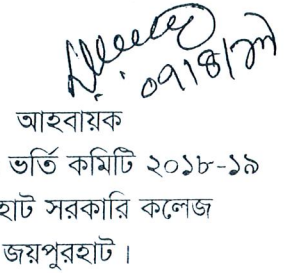 ০৭।৪।১৯
আহবায়ক
ভর্তি কমিটি ২০১৮-১৯
হাট সরকারি কলেজ
জয়পুরহাট।